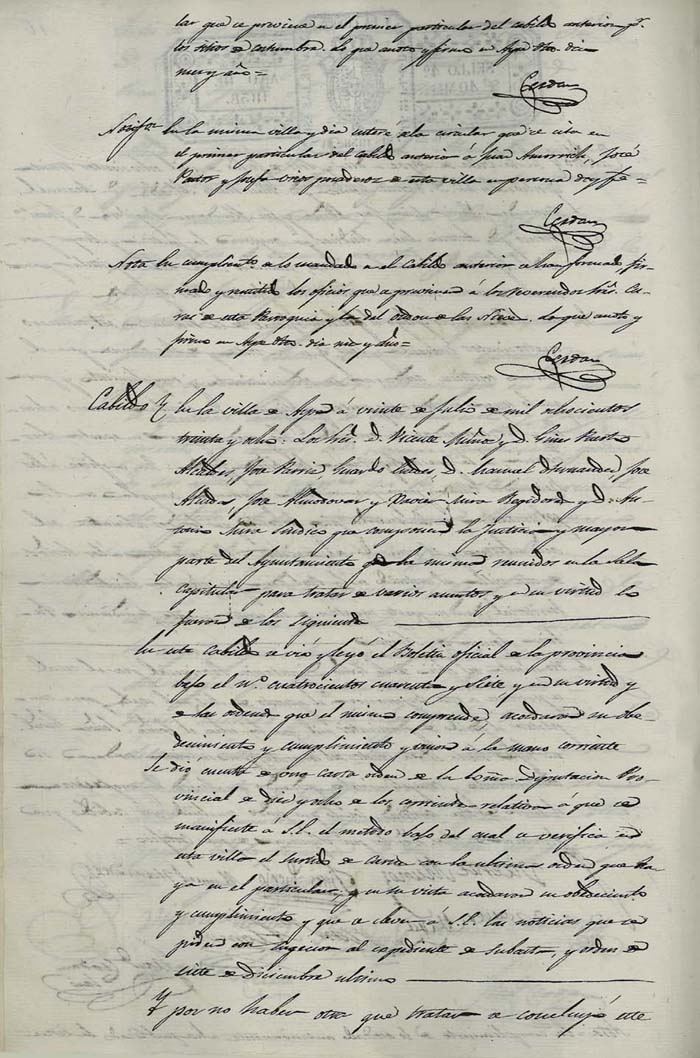 lar que se previene en el primer particular del cabildo anterior pr.
los sitios de costumbre. Lo que anoto y firmo en Aspe dho. dia
mes y año=
Cerdan
Notifon. En la misma villa y dia enteré a la circular que se cita en
el primer particular del Cabildo anterior á Juan José
Pastor y Josefa posaderos de esta villa en persona doy fe=
Cerdan
Nota En cumplimto. a lo mandado en el Cabildo anterior se han formado fir-
mado y remitido los oficios que se previenen á los Reverendos Sres. Cu-
ras de esta Parroquia y la del de las Nieves. Lo que anoto y
firmo en Aspe dho. dia mes y año=
Cerdan
Cabildo En la villa de Aspe á veinte de Julio de mil ochocientos
treinta y ocho: Los Sres. D. Vicente y D. Gines
Alcaldes, Jose D. Manuel Jose
Jose Almodovar y Xavier Regidores y D. An-
tonio Sindico que componen la Justicia y mayor
parte del Ayuntamiento de la misma reunidos en la Sala
Capitular para tratar de varios asuntos y en su virtud lo
fueron de los siguientes
En este Cabildo se vió y leyó el Boletin oficial de la provincia
bajo el no. cuatrocientos cuarenta y siete y en su virtud y
de las ordenes que el mismo comprende, acordaron su obe-
decimiento y cumplimiento y unan a la mano corriente
Se dió cuenta de una carta orden de la Exma. Diputacion Pro-
vincial de diez y ocho de los corrientes relativa á que se
manifieste á S.E. el metodo bajo del cual se verifica en
esta villa el surtido de con la ultima orden que ha-
ya en el particular, y en su vista acordaron su obedecimto.
y cumplimiento y que se eleven á S.E. las noticias que se
piden con sugecion al espediente de subasta, y orden de
siete de diciembre ultimo
Y por no haber otra que tratar se concluyó este